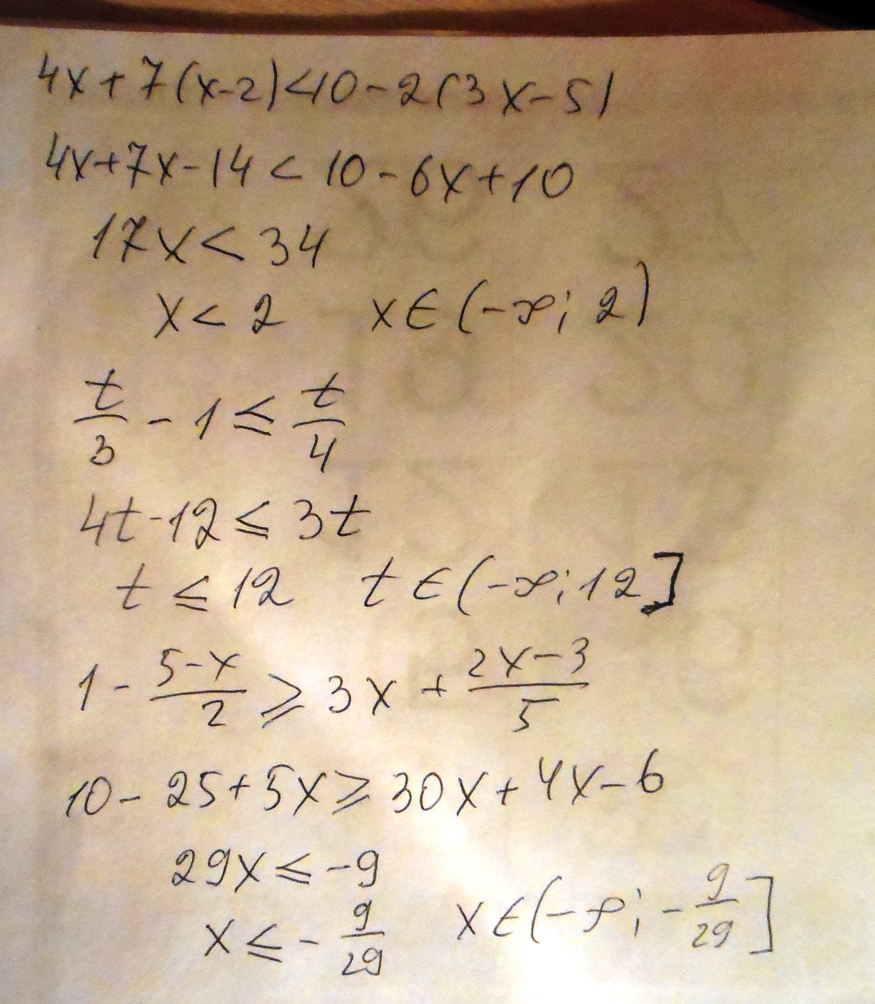 4x + 7(x-2) < 10 - 2(3x-5)
4x+7x-14 < 10-6x+10
17x < 34
x < 2 x ∈ (-∞; 2)
t/3 - 1 ≤ t/4
4t-12 ≤ 3t
t ≤ 12 t ∈ (-∞; 12]
1 - (5-x)/2 ≥ 3x + (2x-3)/5
10 - 25+5x ≥ 30x+4x-6
29x ≤ -9
x ≤ - 9/29 x ∈ (-∞; - 9/29]